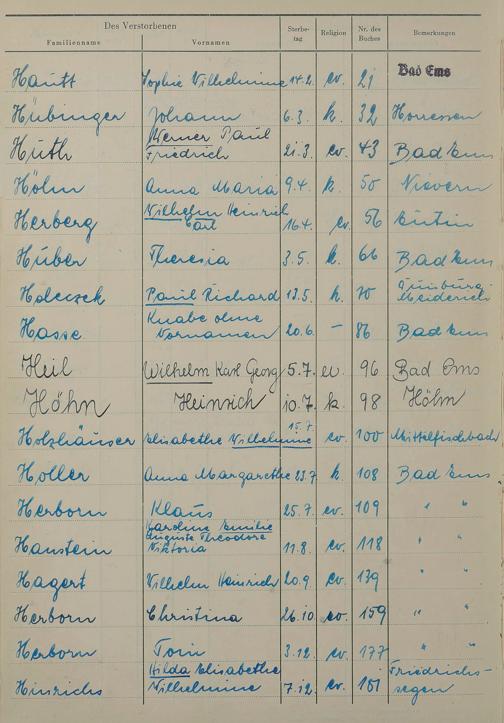 Des Verstorbenen
Familienname Vornamen Sterbe-tag Religion Nr. des Buches Bemerkungen
Hautt Sophie Wilhelmine 14.2. ev. 21 Bad Ems
Hübinger Johann 6.3. k. 32 Horressen
Huth Werner Paul Friedrich 21.3. ev. 43 Bad Ems
Höhn Anna Maria 9.4. k. 50 Nievern
Herberg Wilhelm Heinrich Carl 16.4. ev. 56 Eutin
Huber Theresia 3.5. k. 66 Bad Ems
Holeczek Paul Richard 13.5. k. 70 Duisburg Meiderich
Hasse Knabe ohne Vornamen 20.6. – 86 Bad Ems
Heil Wilhelm Karl Georg 5.7. ev. 96 Bad Ems
Höhn Heinrich 10.7. k. 98 Höhn
Holzhäuser Elisabethe Wilhelmine 15.7. ev. 100 Mittelfischbach
Holler Anna Margarethe 23.7. k. 108 Bad Ems
Herborn Klaus 25.7. ev. 109 " "
Hanstein Karoline Emilie Auguste Theodore Viktoria 11.8. ev. 118 " "
Hagert Wilhelm Heinrich 20.9. ev. 139 " "
Herborn Christina 26.10. ev. 159 " "
Herborn Toni 3.12. ev. 177 " "
Hinrichs Hilda Elisabethe Wilhelmine 7.12. ev. 181 Friedrichs-segen